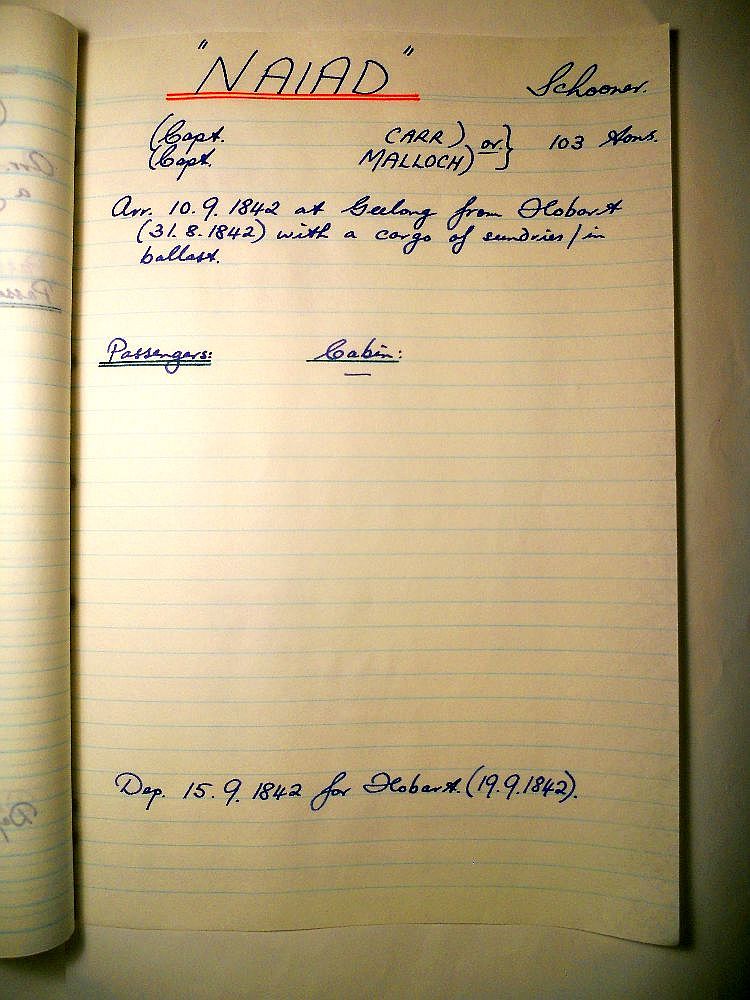 "NAIAD" Schooner.
(Capt. CARR) or } 103 tons.
(Capt. MALLOCH)
Arr. 10.9.1842 at Geelong from Hobart
(31.8.1842) with a cargo of sundries/in
ballast.
Passengers: Cabin:
—
Dep. 15.9.1842 for Hobart. (19.9.1842).